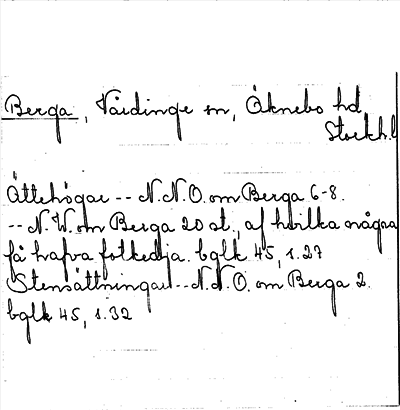 Berga, Vårdinge sn, Öknebo hd,
Stockh.l
Ättehögar -- N.N.O. om Berga 6-8.
-- N.W. om Berga 20 st., af hvilka några
få hafva fotkedja. bglk 45, s. 27
Stensättningar -- N.N.O. om Berga 2.
bglk 45, s. 32